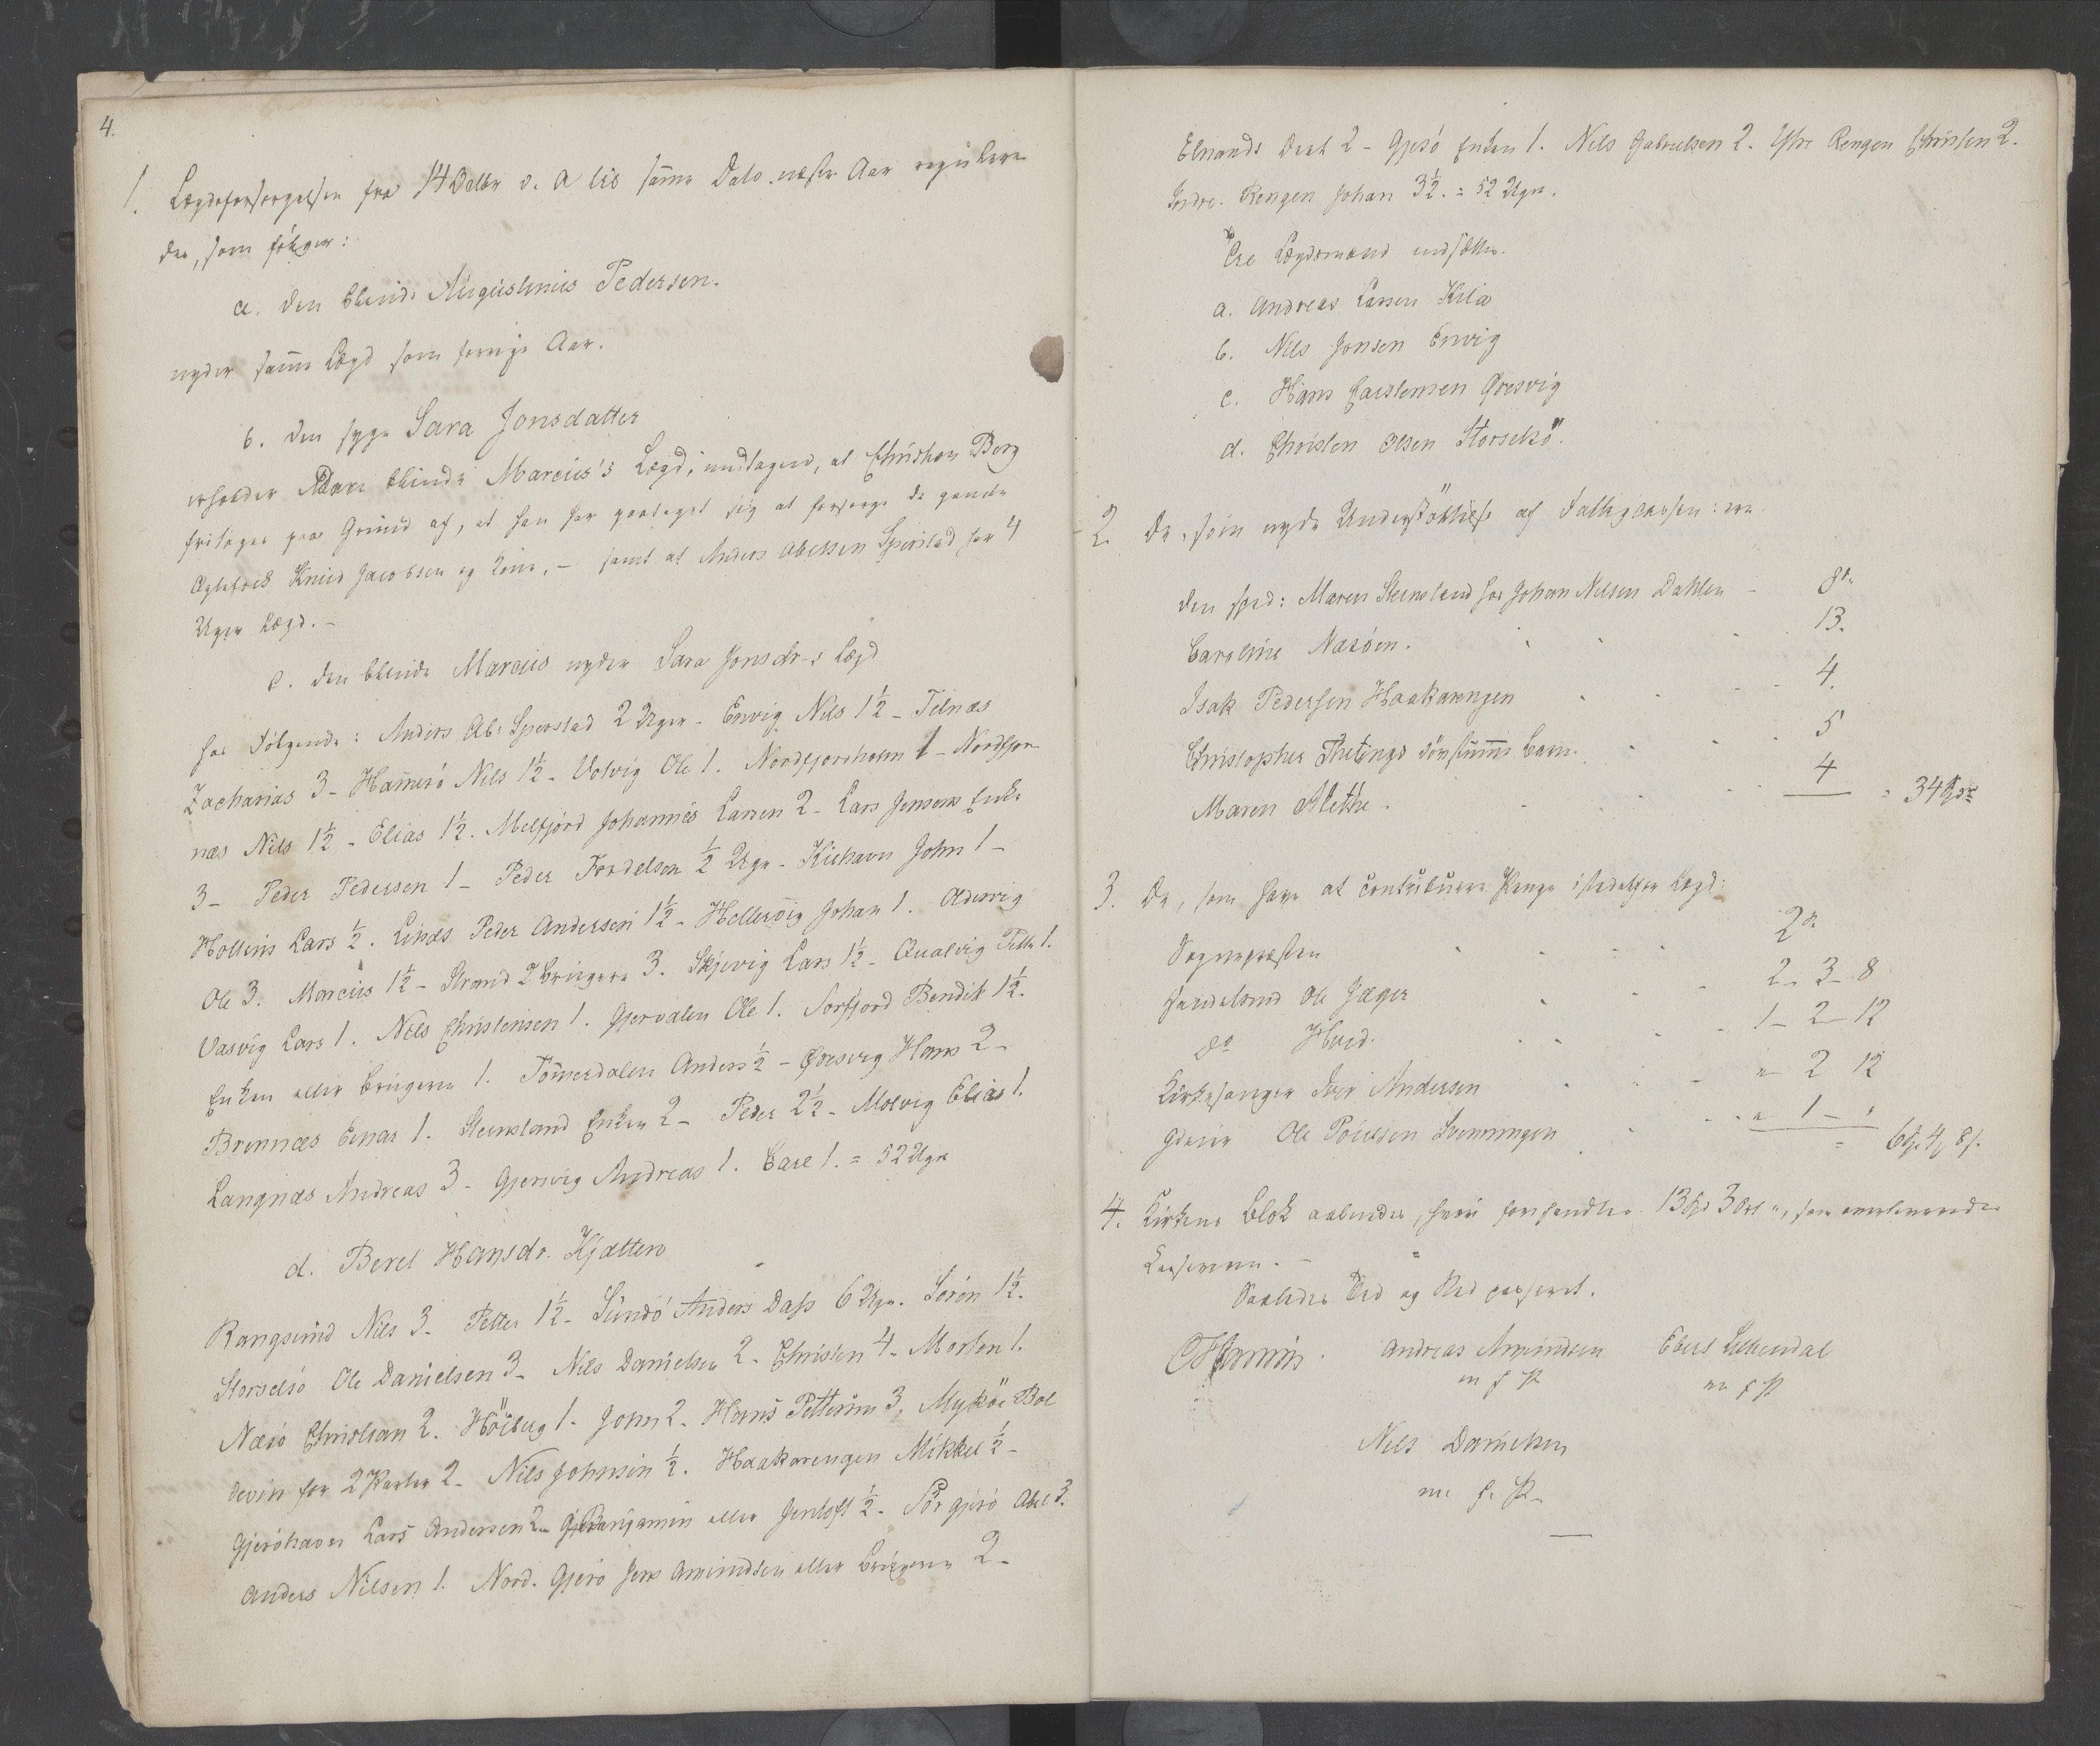 4.
1. Lægdsforsorgelsen fra 14 Octbr d. A til samme Dato næste Aar regulere
des, som følger:
a. den blinde Augustinus Pedersen.
nyder samme Lægd som forrige Aar.
b. den syge Sara Jonsdatter
erholder blinde Marcus's Lægd, undtagen, at Christian Berg
fritages paa Grund af, at han har paataget sig at forsørge de gamle
Ægtefolk Knud Jacobsen og Kone, – samt at Anders Abelsen Sperstad har 4
Uger Lægd. –
c. den blinde Marcus nyder Sara Jonsdr-s Lægd
hos følgende: Anders Ab: Sperstad 2 Uger – Envig Nils 1½ – Telnæs
Zacharias 3 – Hammerö Nils 1½ – Valvig Ole 1. Nordfjordholm 1 – Nordfjor-
næs Nils 1½ – Elias 1½. Melfjord Johannes Larsen 2 – Lars Jensens Enke
3 – Peder Pedersen 1 – Peder Fordelsen ½ Uge – Kilhavn John 1 –
Hollein Lars ½. Linæs Peder Andersen 1½ – Hellervig Johan 1. Oldervig
Ole 3. Marcus 1½ – Strand 2 Brugere 3. Skjevig Lars 1½ – Qualvig Peter 1.
Vasvig Lars 1. Nils Christensen 1. Gjervalen Ole 1. Sorfjord Bendik 1½.
Enken eller Brugeren 1. Tömmerdalen Anders ½ – Øresvig Hans 2 –
Brennæs Einar 1. Stensland Enken 2 – Peder 2½ – Molvig Elias 1.
Langnæs Andreas 3 – Gjersvig Andreas 1. Carl 1. = 52 Uger
d. Beret Hansdr. Kjætten
Rangsund Nils 3 – Petter 1½ – Sundö Anders Dass 6 Uger. Sören 1½.
Storselsö Ole Danielsen 3 – Nils Danielsen 2 – Christen 4 – Morten 1.
Næsö Christian 2. Höiberg 1 – John 2 – Hans Pettersen 3. Myköe Bol
devin for 2 Parter 2 – Nils Johnsen ½. Haakarengen Mikkel ½ –
Gjeröhavn Lars Andersen 2 – Benjamin eller Jentoft ½ – Sör Gjerö Abel 3.
Anders Nilsen 1. Nord-Gjerö Jens Amundsen eller Brugeren 2 –
Elnands Deel 2 – Gjesö Enken 1. Nils Gabrielsen 2. Ytre Rengen Christen 2.
Indre Rengen Johan 3½. = 52 Uger.
Til Lægdsmænd indsættes.
a. Andreas Larsen Kila
b. Nils Jonsen Envig
c. Hans Carstensen Øresvig
d. Christen Olsen Storselsö.
2. De, som nyde Understöttelse af Fattigcassen: ere
den sped: Maren Stensland hos Johan Nilsen Dahlen – 8
Caroline Næsöen. 13.
Isak Pedersen Haakarengen 4.
Christopher Thetings dövstumme Barn. 5
Maren Alethe. 4 = 34
3. De, som have at contribuere Penge istedetfor Lægd:
Sognepræsten 2
Handelsmd Ole Jæger 2 – 3 – 8
do Hved. 1 – 2 – 12
Kirkesanger Iver Andersen " 2 12
Gdeier Ole Poulsen Svenningen " 1 – "
= 6 4 8
4. Kirkens Blok aabnedes, hvori forefandtes 13 3 , som overleveredes
Kassereren. –
Saaledes Tid og Sted passeret.
Andreas Amundsen Ebert Lekkendal
m f P m f P
Nils Danielsen
m. f. P.